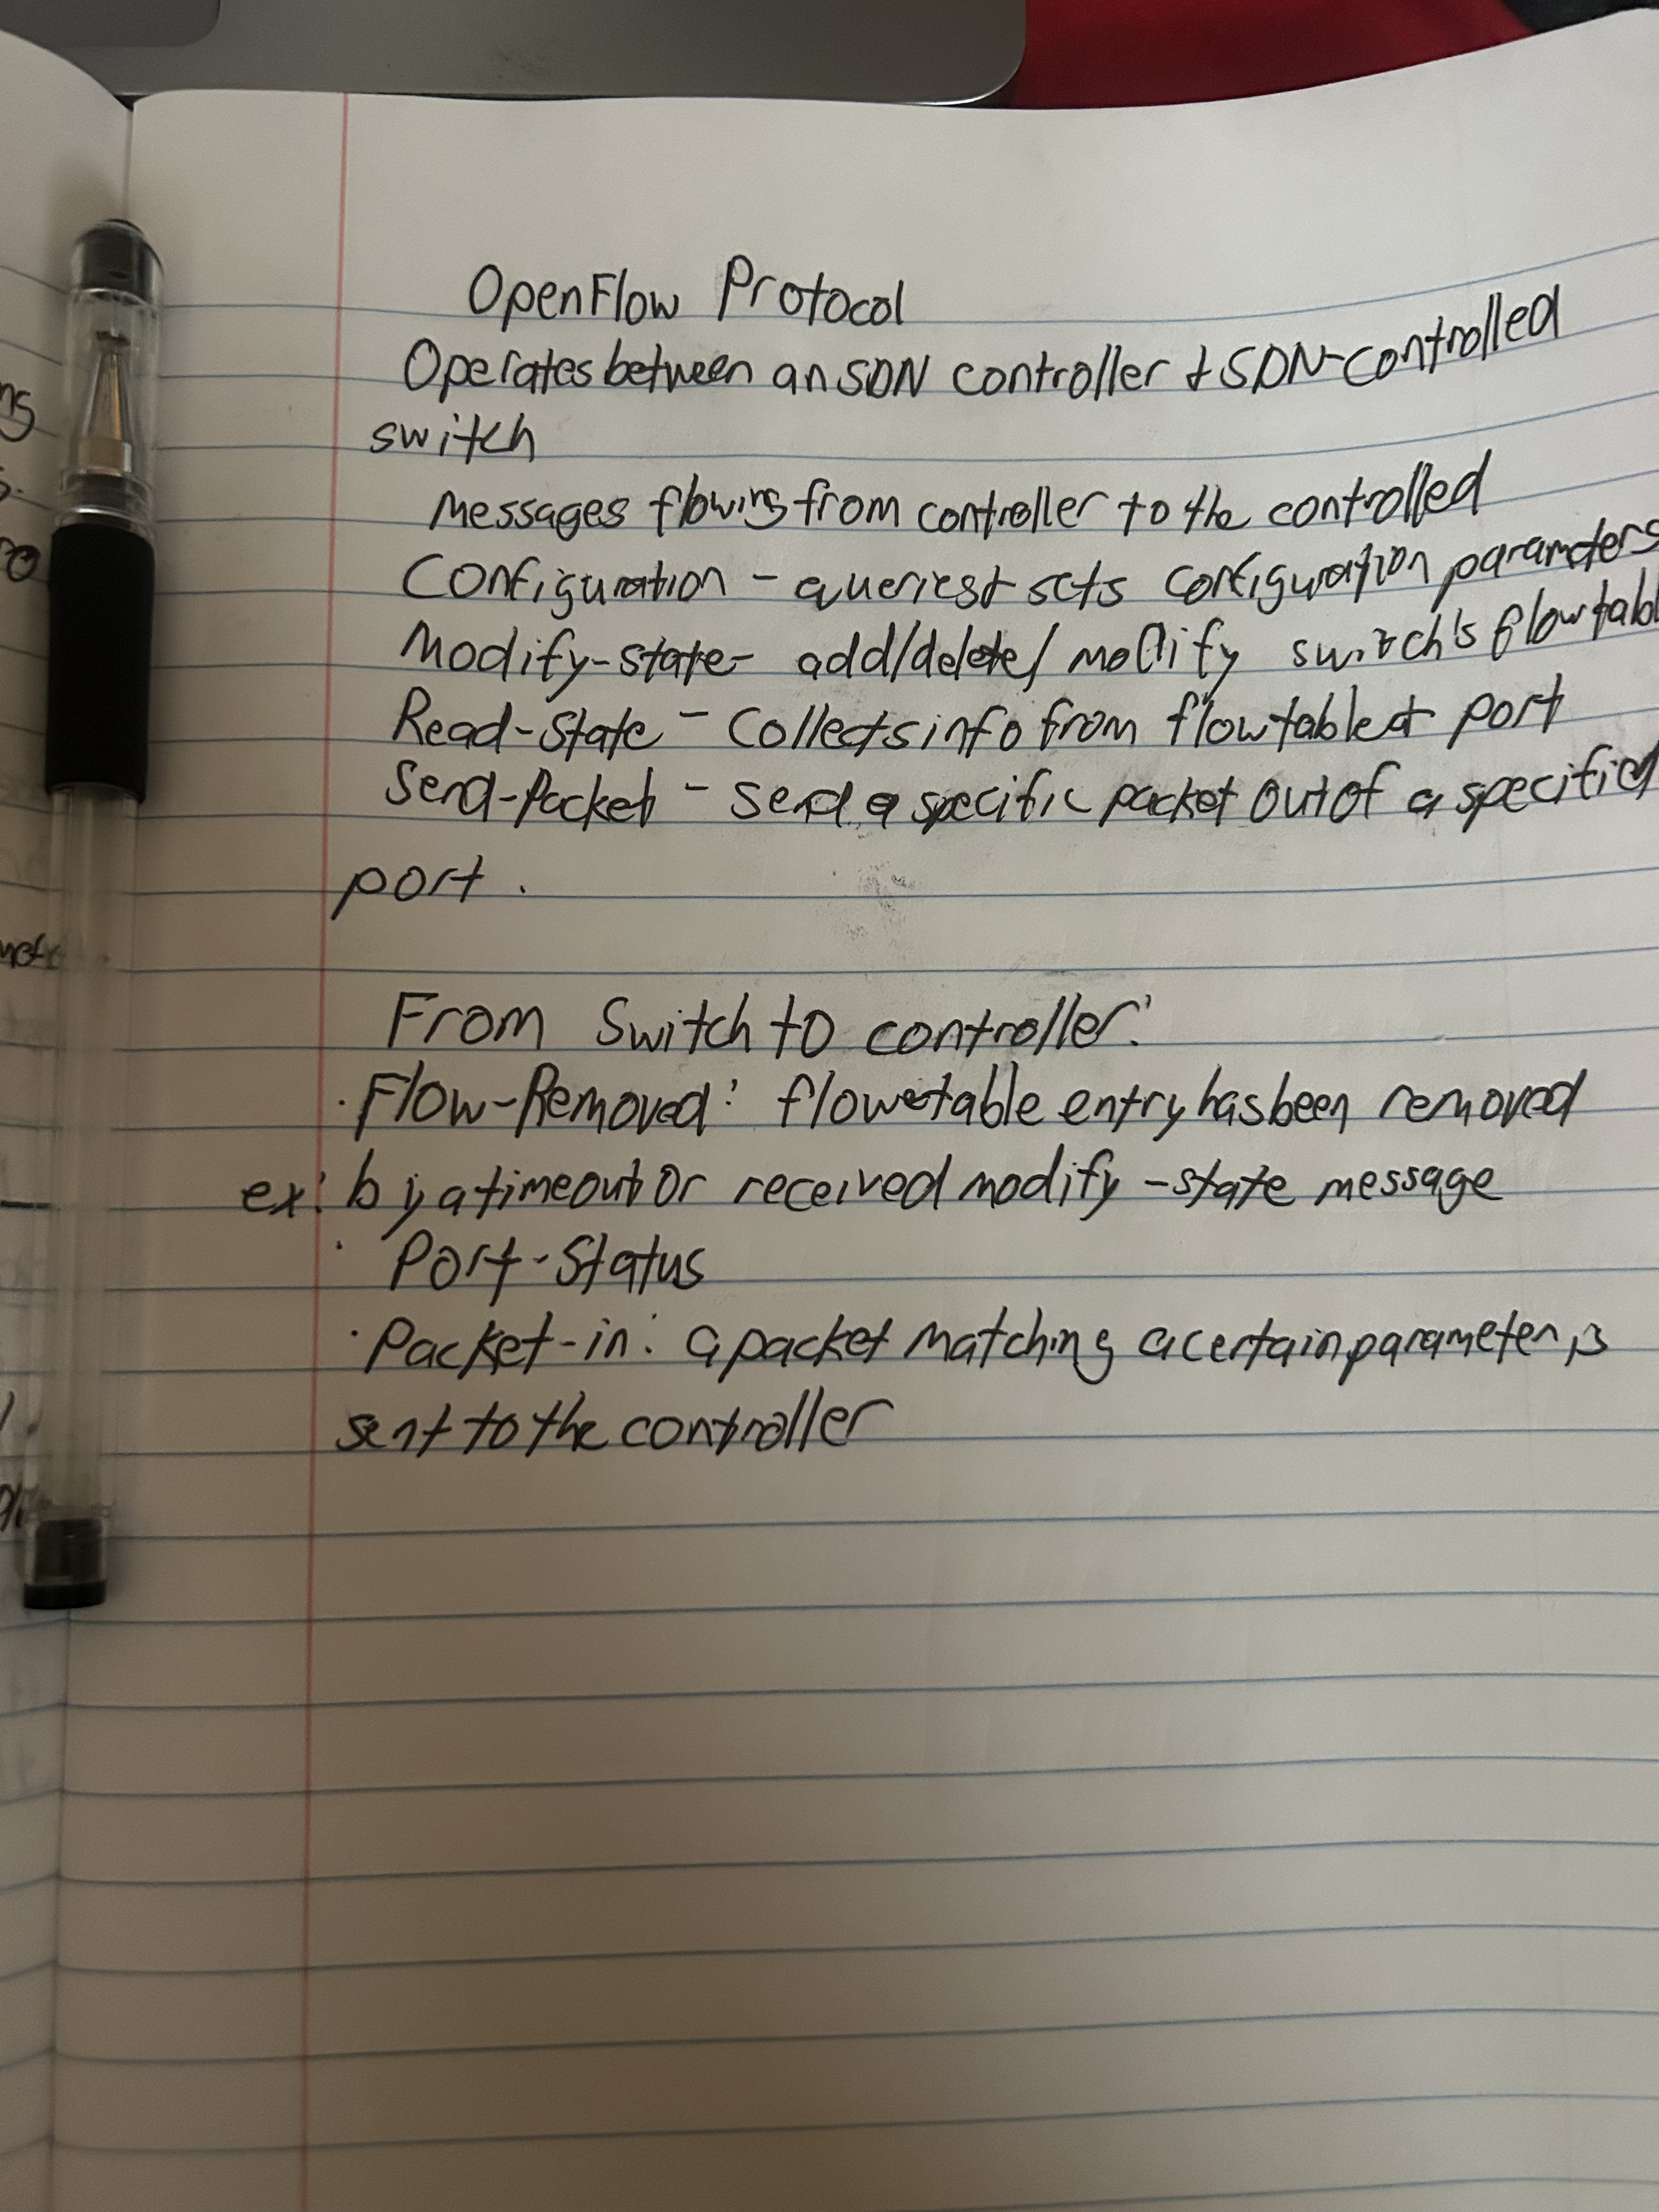 OpenFlow Protocol
Operates between an SDN controller & SDN-controlled
switch
Messages flowing from controller to the controlled
Configuration - queries & sets configuration parameters
Modify-state- add/delete/modify switch's flow tabl
Read-State - Collects info from flow table & port
Send-Packet - send a specific packet out of a specified
port.
From Switch to controller:
· Flow-Removed: flow table entry has been removed
ex: by a timeout or received modify-state message
· Port-Status
· Packet-in: a packet matching a certain parameter is
sent to the controller